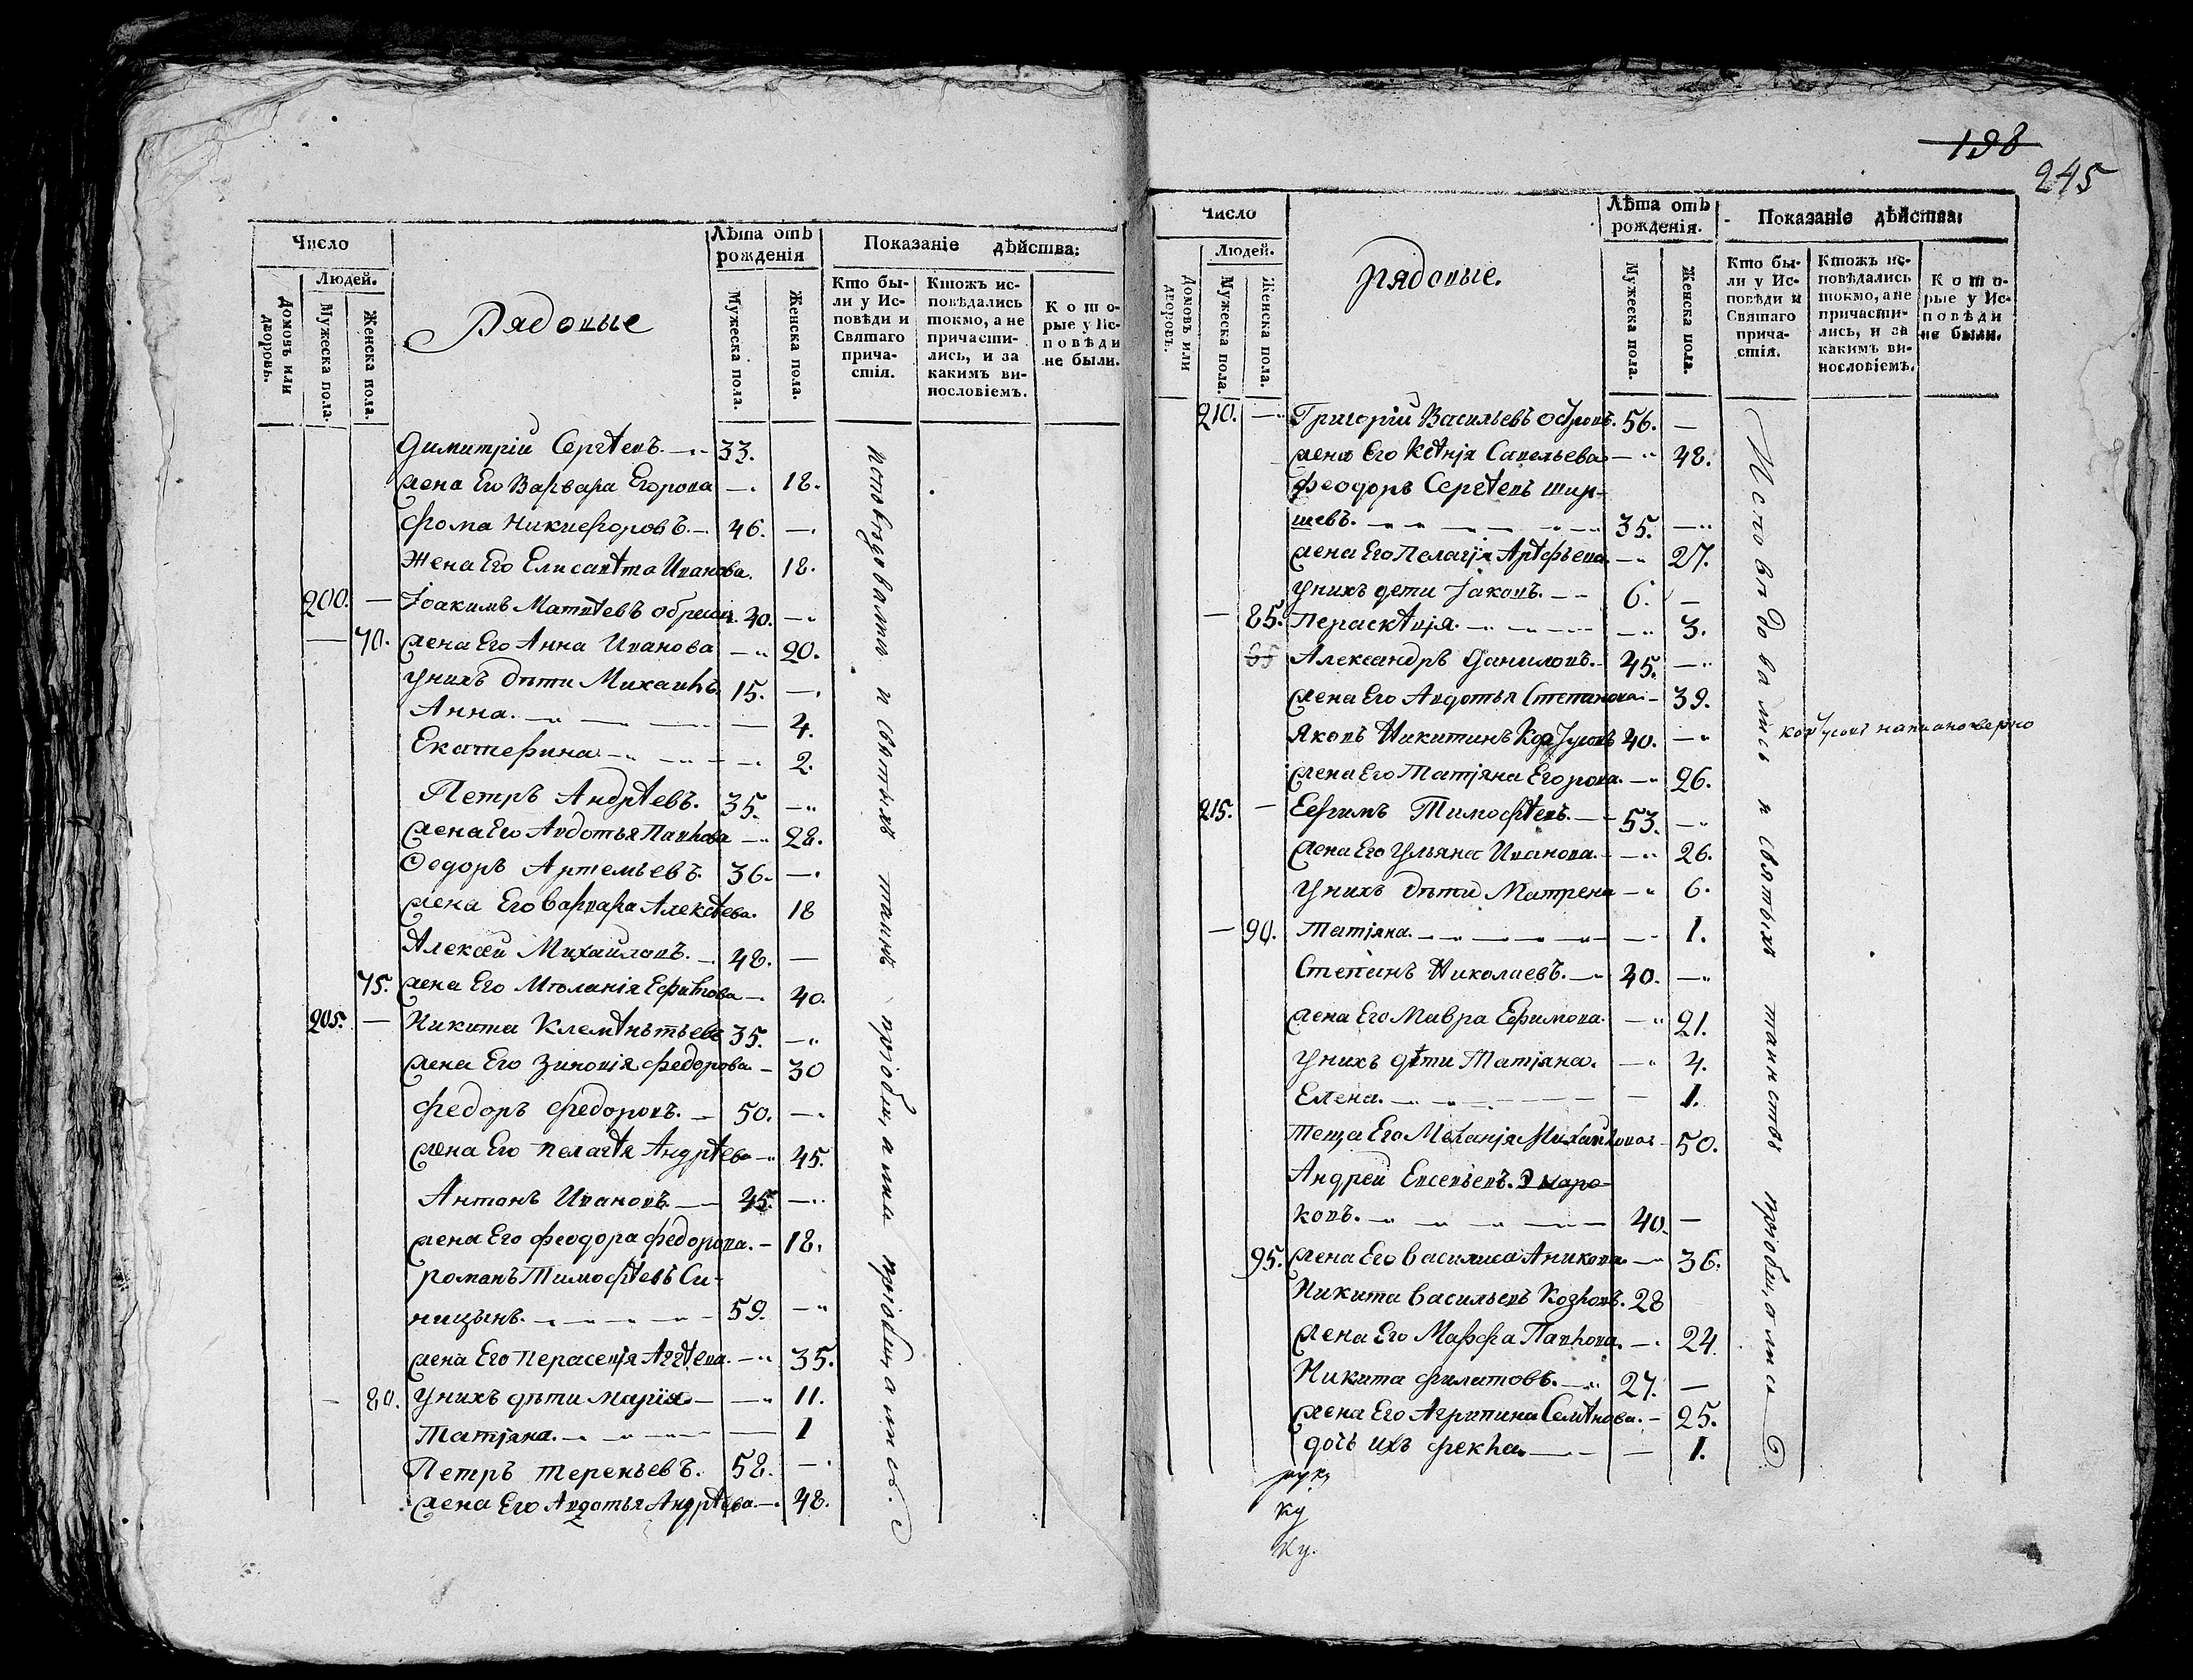 Число
Людей.
Домовъ или дворовъ.
Мужеска пола.
Женска пола.
Рядовые
Лѣта отъ рожденія
Мужеска пола.
Женска пола.
Показаніе дѣйства:
Кто были у Исповѣди и Святаго причастія.
Ктожъ исповѣдались токмо, а не причастились, и за какимъ винословіемъ.
Которые у Исповѣди не были.
Димитрій Сергѣевъ. 33.
жена Его Варвара Егорова — 18.
Фома Никифоровъ. 46. —
Жена Его Елисавѣта Иванова. 18.
200. — Іоакимъ Матвѣевъ 40. —
— 70. жена Его Анна Иванова — 20.
у нихъ дѣти Михаилъ 15. —
Анна. — 4.
Екатерина — 2.
Петръ Андрѣевъ. 35. —
жена Его Авдотья Павлова — 28.
Федоръ Артемьевъ. 36. —
жена Его Варвара Алексѣева. 18
Алексѣй Михайловъ. 48. —
75. жена Его Мѣланія Ефимова — 40.
205. — Никита Клемѣнтьевъ 35. —
жена Его Зиновія Федорова — 30
Федоръ Федоровъ. 50. —
жена Его Пелагѣя Андрѣева — 45.
Антонъ Ивановъ. 45. —
жена Его Феодора Федорова. — 18.
Романъ Тимофѣевъ Си-
ницынъ. 59. —
жена Его Перасевія — 35.
— 80. у нихъ дѣти Марія — 11.
Татіяна. — 1
Петръ Терентьевъ. 58. —
жена Его Авдотья Андрѣева. — 48.
исповѣдовались и святыхъ таинъ пріобщались.
198
245
Число
Людей.
Домовъ или дворовъ.
Мужеска пола.
Женска пола.
Рядовые.
Лѣта отъ рожденія.
Мужеска пола.
Женска пола.
Показаніе дѣйства:
Кто были у Исповѣди и Святаго причастія.
Ктожъ исповѣдались токмо, а не причастились, и за какимъ винословіемъ.
Которые у Исповѣди не были.
210. — Григорій Васильевъ 56. —
жена Его Ксѣнія Савельева — 48.
Феодоръ Сергѣевъ Шир-
шевъ. 35. —
жена Его Пелагія — 27.
у нихъ дети Іаковъ. 6. —
— 85. Параскѣвія. — 3.
85 Александръ Даниловъ. 45. —
жена Его Авдотья Степанова — 39.
Яковъ Никитинъ 40. —
жена Его Татіяна Егорова. — 26.
215. — Ефимъ Тимофѣевъ. 53. —
жена Его Ульяна Иванова. — 26.
у нихъ дѣти Матрена — 6.
— 90. Татіяна. — 1.
Степанъ Николаевъ. 40. —
жена Его Мавра Ефимова. — 21.
у нихъ дѣти Татіяна. — 4.
Елена. — 1.
Теща Его Меланія Михайлова — 50.
Андрей Евсевьевъ.
ковъ. 40. —
95. жена Его Василиса Аникова — 36.
Никита Васильевъ Козловъ. 28
жена Его Марфа Павлова. — 24.
Никита Филатовъ. 27. —
жена Его Агрипина Семѣнова. — 25.
дочь ихъ Фекла. — 1.
Исповѣдовались и святыхъ таинствъ пріобщались
написано верно
ку
ку.